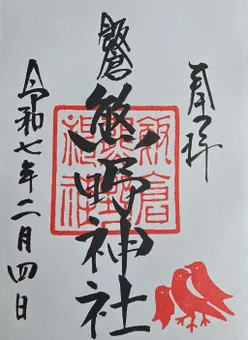 奉拝
飯倉
熊野神社
飯倉
熊野
神社
令和七年二月四日